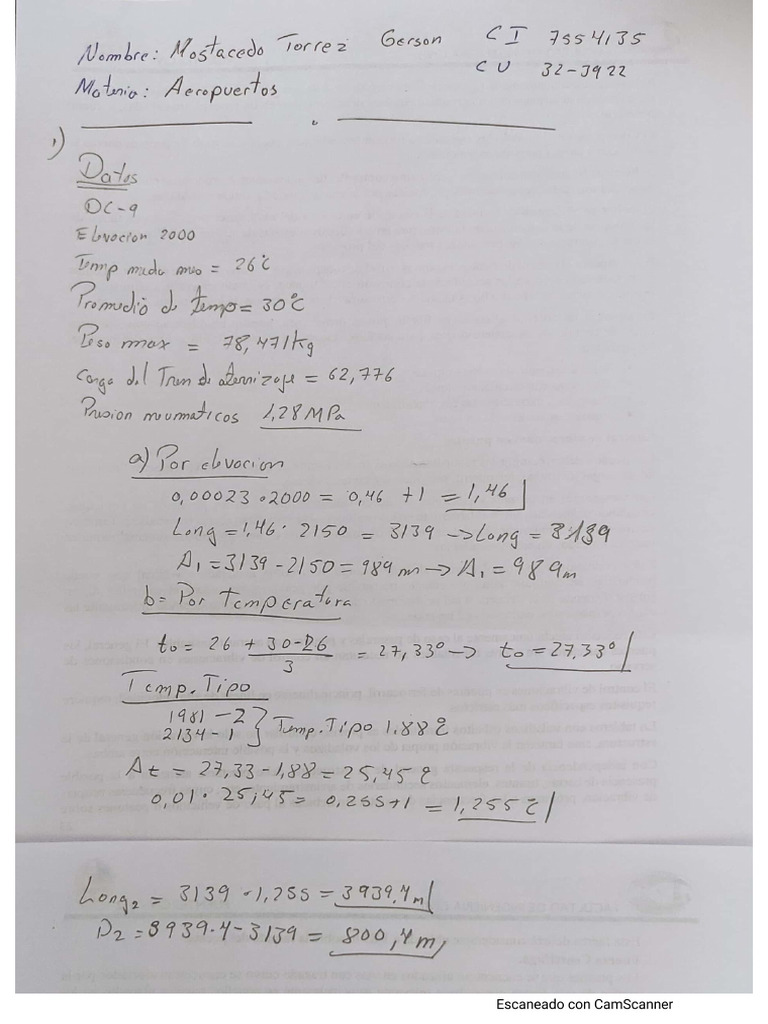 Nombre: Mostacedo Torrez Gerson CI 7554135
CU 32-3922
Materia: Aeropuertos
1)
Datos
DC-9
Elevacion 2000
Temp media mes = 26°C
Promedio de temp = 30°C
Peso max = 78,471kg
Carga del Tren de aterrizaje = 62,776
Presion neumaticos 1,28 MPa
a) Por elevacion
0,00023 . 2000 = 0,46 +1 = 1,46
Long = 1,46 . 2150 = 3139 -> Long = 3139
A₁ = 3139 - 2150 = 989 m -> A₁ = 989m
b = Por Temperatura
to = 26 + 30-26 / 3 = 27,33° -> to = 27,33°
Temp. Tipo
1981 - 2
2134 - 1 } Temp. Tipo 1.88°C
At = 27,33 - 1,88 = 25,45 °C
0,01 . 25,45 = 0,255+1 = 1,255 °C
Long₂ = 3139 . 1,255 = 3939,4m
D₂ = 3939.4 - 3139 = 800,4m
Escaneado con CamScanner